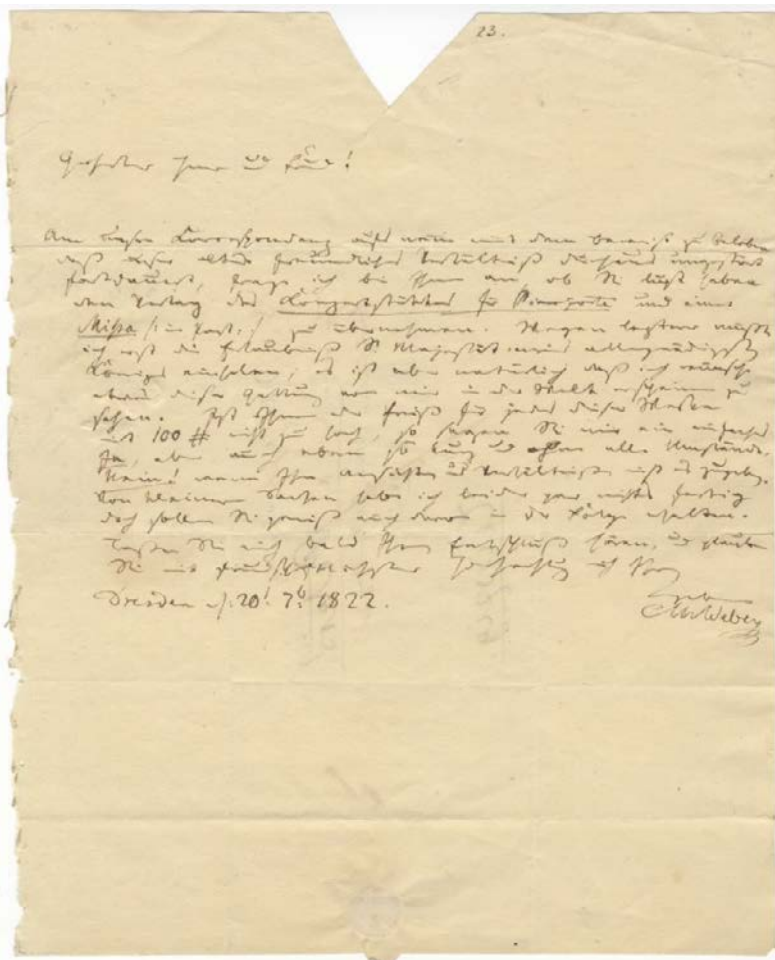 23.
Geehrter Herr und Freund!
Um unsere Correspondenz aufs neue mit dem Beweise zu beleben
daß unser altes freundliches Verhältniß durchaus ungestört
fortdauert, frage ich bei Ihnen an ob Sie Lust haben
den Verlag des Conzertstückes für Pianoforte und einer
Missa /: in Part: :/ zu übernehmen. Wegen lezterer müßte
ich erst die Erlaubniß Sr Majestät meines allergnädigsten
Königs einholen, es ist aber natürlich daß ich wünsche
etwas dieser Gattung von mir in der Welt erscheinen zu
sehen. Ist Ihnen der Preiß für jedes dieser Werke
mit 100 # nicht zu hoch, so sagen Sie mir ein einfaches
Ja, aber auch eben so kurz und ohne alle Umstände,
Nein! wenn Ihre Ansichten und Verhältniße nicht es zugeben.
Von kleineren Sachen habe ich leider gar nichts fertig
doch sollen Sie gewiß auch davon in der Folge erhalten.
Laßen Sie mich bald Ihren Entschluß hören, und glauben
Sie mit Hochachtung
Dresden d: 20t 7b 1822.
CMvWeber